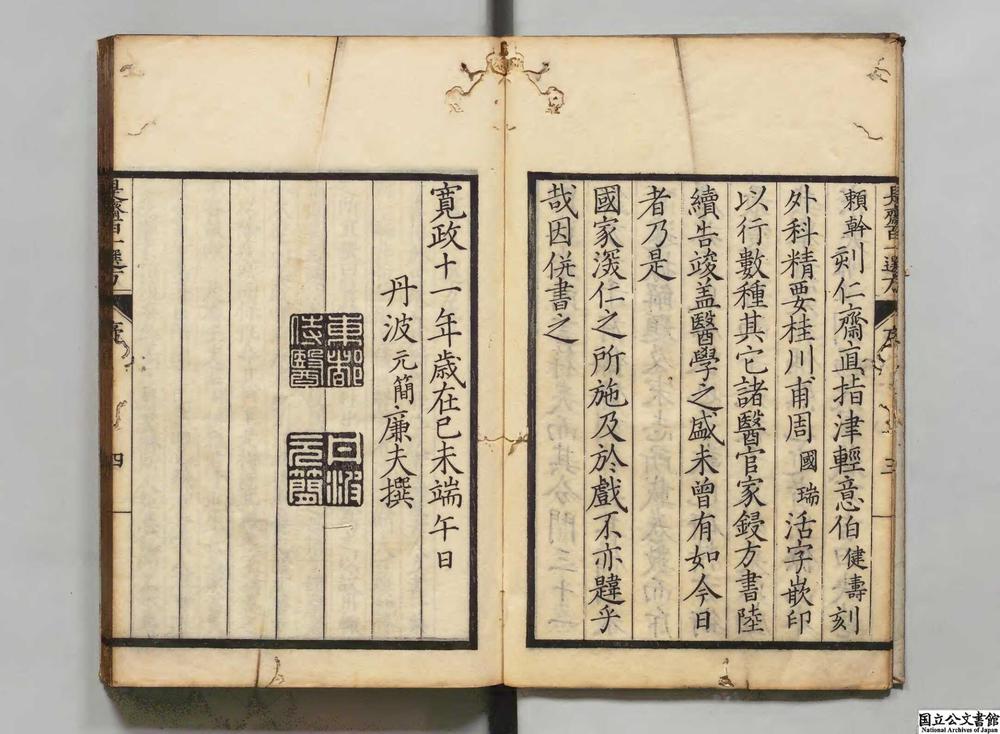 賴幹刻仁齋直指津輕意伯健壽刻
外科精要桂川甫周國瑞活字嵌印
以行數種其它諸醫官家鋟方書陸
續告竣盖醫學之盛未曾有如今日
者乃是
國家深仁之所施及於戲不亦韙乎
哉因併書之
寬政十一年歲在己未端午日
丹波元簡廉夫撰
東都侍醫
丹波元簡
是齋百一選方
序
三
四
国立公文書館
National Archives of Japan